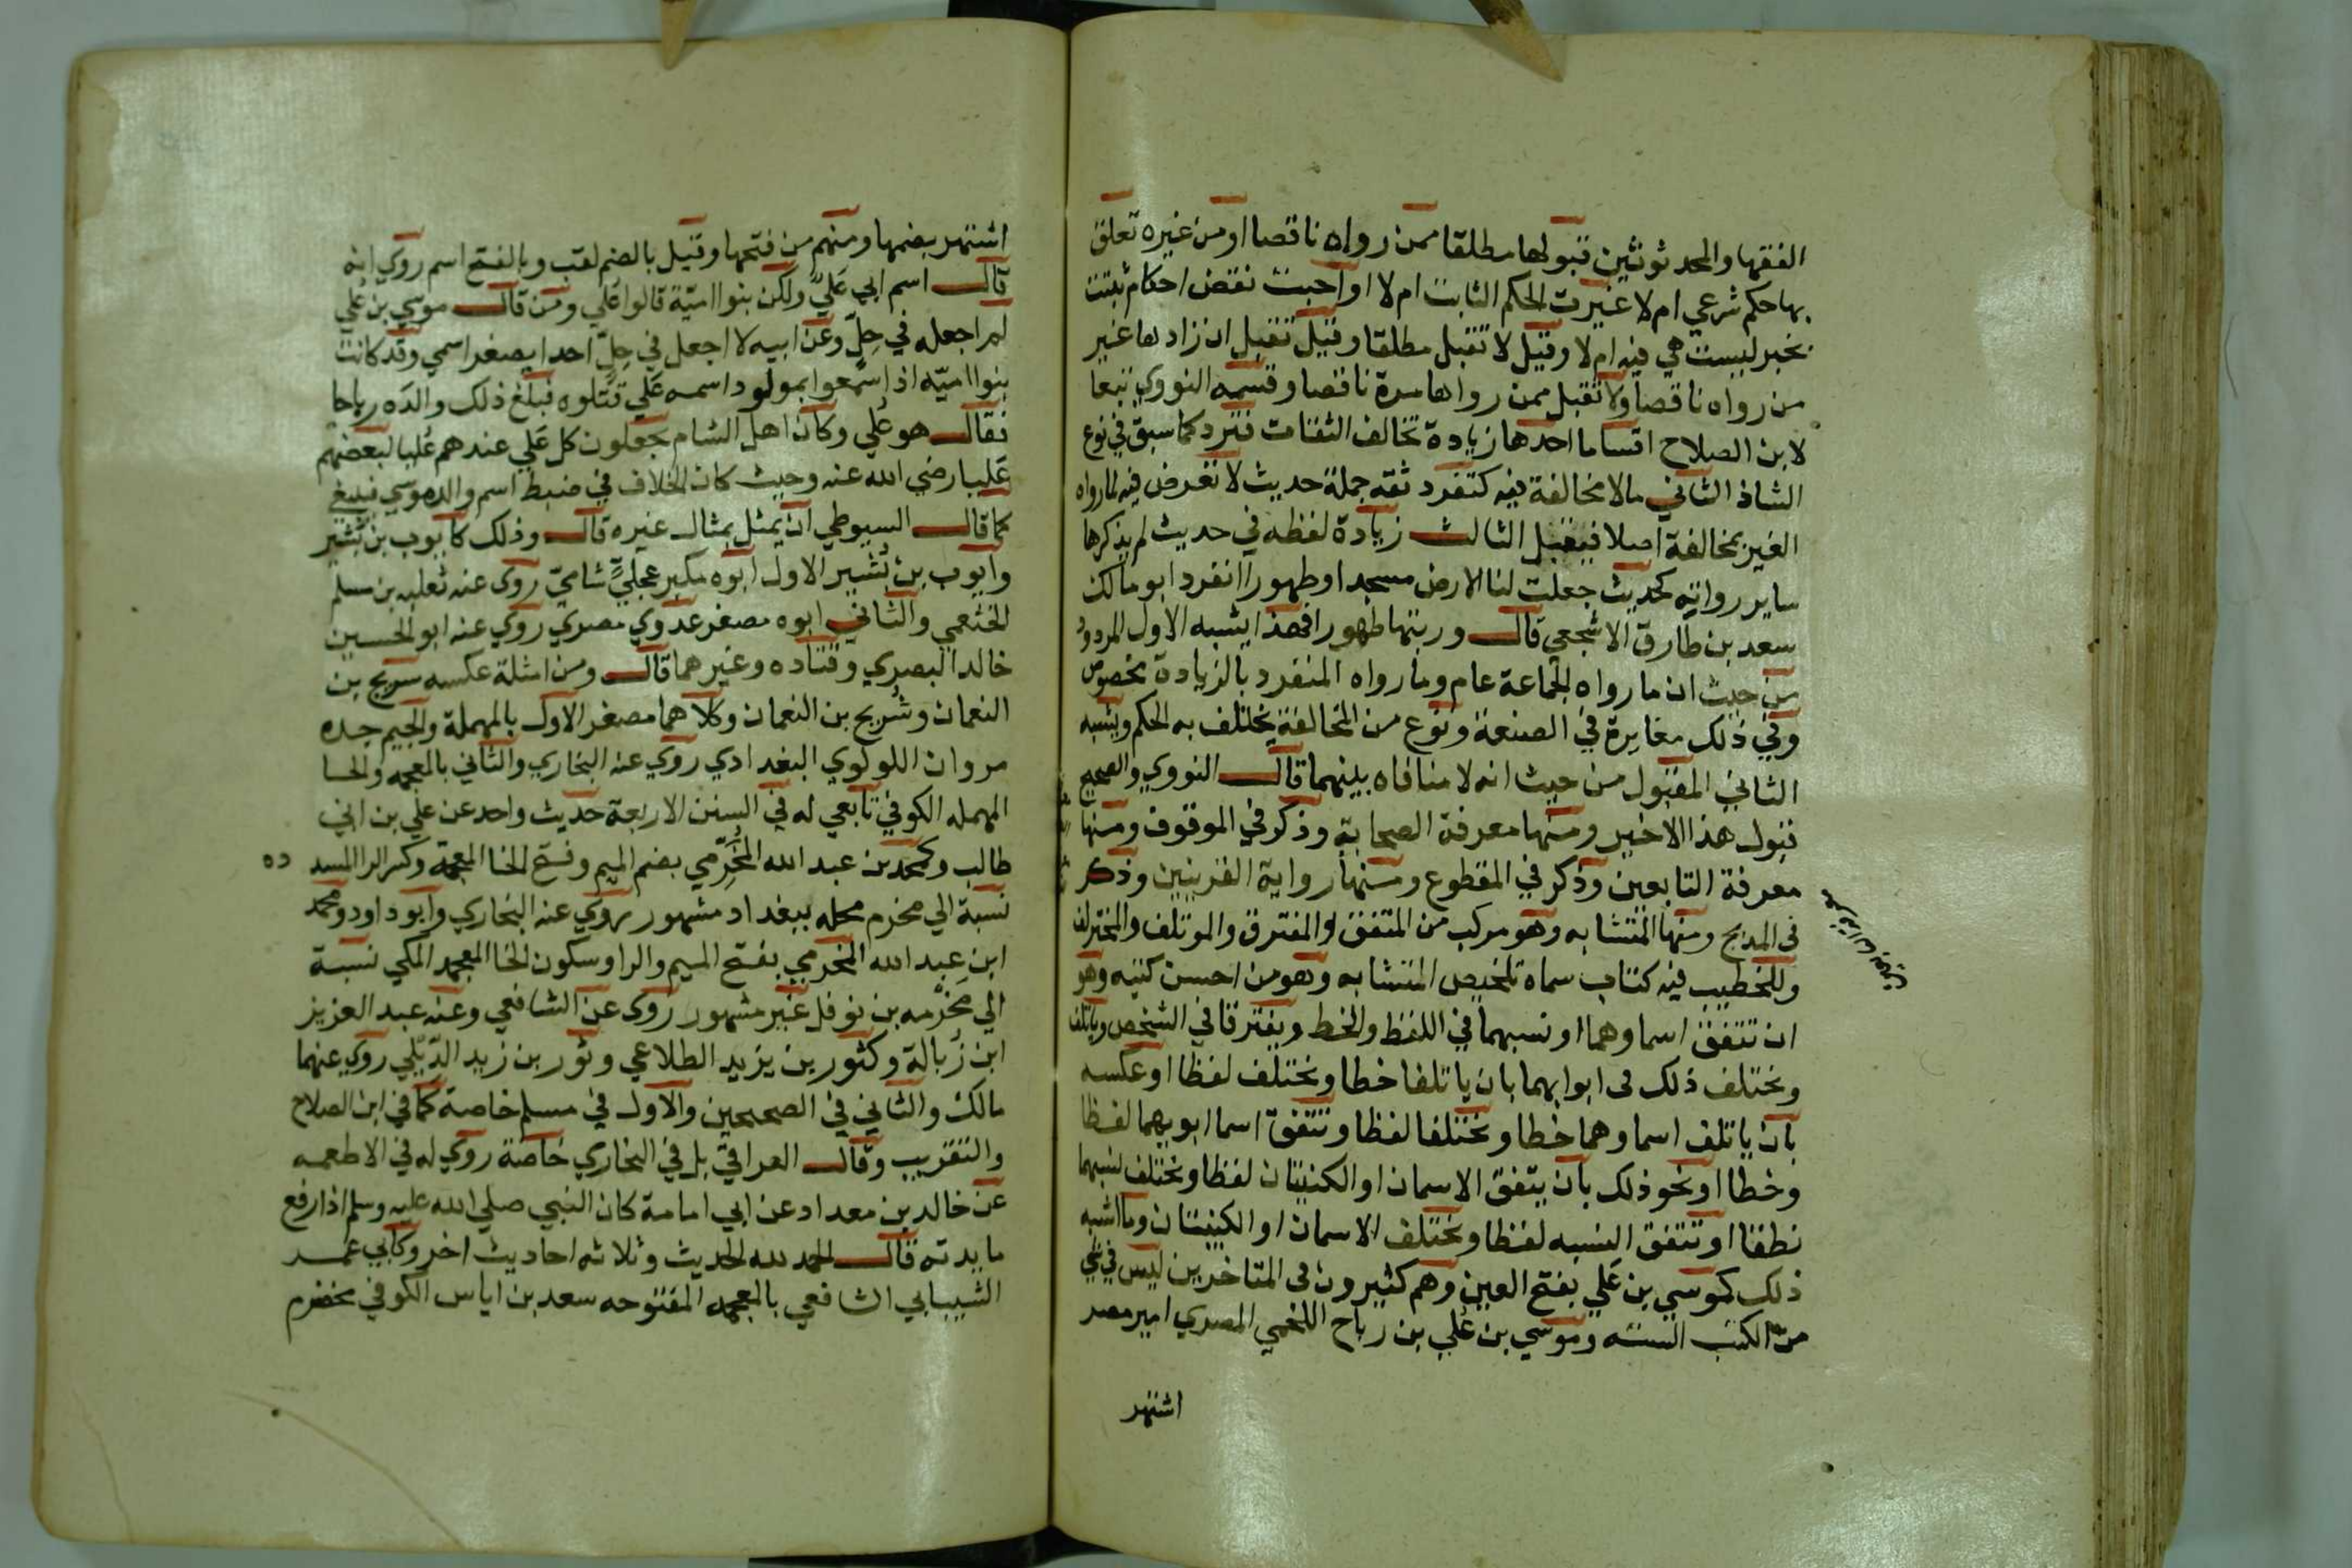 الفقها والمحدثوثين قبولها مطلقا ممن رواه ناقصا او من غيره تعلق
بها حكم شرعي ام لا غيرت الحكم الثابت ام لا اواحبت نقض احكام ثبتت
بخبر ليست هي فيه ام لا وقيل لا تقبل مطلقا وقيل تقبل ان زادها غير
من رواه ناقصا ولا تقبل ممن رواها مرة ناقصا وقسمه النووي تبعا
لابن الصلاح اقساما احدها زيادة تخالف الثقات فترد كما سبق في نوع
الشاذ الثاني مالا مخالفة فيه كتفرد ثقة جملة حديث لا تعرض فيه لما رواه
الغير بمخالفة اصلا فيقبل الثالث زيادة لفظه في حديث لم يذكرها
ساير رواته كحديث جعلت لنا الارض مسجدا وطهورا انفرد ابو مالك
سعد بن طارق الاشجعي قال وربتها طهورا فهذا يشبه الاول المردود
من حيث ان ما رواه الجماعة عام وما رواه المنفرد بالزيادة مخصوص
وفي ذلك مغايرة في الصنعة ونوع من المخالفة يختلف به الحكم ويشبه
الثاني المقبول من حيث انه لا منافاه بينهما قال النووي والصحيح
قبول هذا الاخير ومنها معرفة الصحابة وذكر في الموقوف ومنها
معرفة التابعين وذكر في المقطوع ومنها رواية القرينين وذكر
فى المدبج ومنها المتشابه وهو مركب من المتفق والمفترق والموتلف والمختلف
وللخطيب فيه كتاب سماه تلخيص المتشابه وهو من احسن كتبه وهو
ان تتفق اسماوهما او نسبهما في اللفظ والخط ويفترقا في الشخص وياتلف
ويختلف ذلك فى ابوابهما بان ياتلفا خطا ويختلف لفظا او عكسه
بان ياتلف اسماوهما خطا ويختلفا لفظا وتتفق اسما ابويهما لفظا
وخطا او نحو ذلك بان يتفق الاسمان او الكنيتان لفظا ويختلف نسبهما
نطقا او تتفق النسبه لفظا ويختلف الاسمان او الكنيتان وما اشبه
ذلك كموسي بن علي بفتح العين وهم كثيرون فى المتاخرين ليس في شي
من الكتب السته وموسي بن علي بن رباح اللخمي المصري امير مصر
اشتهر
اشتهر بضمها ومنهم من فتحها وقيل بالضم لقب وبالفتح اسم روي انه
قال اسم ابي علي ولكن بنوا امية قالوا علي ومن قال موسي بن علي
لم اجعله في حل وعن ابيه لا اجعل في حل احدا يصغر اسمي وقد كانت
بنوا اميه اذا سمعوا بمولود اسمه علي قتلوه فبلغ ذلك والده رباحا
فقال هو علي وكان اهل الشام يجعلون كل علي عندهم عليا لبعضهم
عليا رضي الله عنه وحيث كان الخلاف في ضبط اسم والد موسي فينبغي
كما قال السيوطي ان يمثل بمثال غيره قال وذلك كايوب بن بشير
وايوب بن بشير الاول ابوه مكبر عجلي شامي روي عنه ثعلبه بن مسلم
الخثعمي والثاني ابوه مصغر عدوي مصري روي عنه ابو الحسين
خالد البصري وقتاده وغيرهما قال ومن امثلة عكسه سريج بن
النعمان وشريح بن النعمان وكلاهما مصغر الاول بالمهملة والجيم جده
مروان اللولوي البغدادي روي عنه البخاري والثاني بالمعجمه والحا
المهمله الكوفي تابعي له في السنن الاربعة حديث واحد عن علي بن ابي
طالب وكمحمد بن عبد الله المخرمي بضم الميم وفتح الخا المعجمة وكسر الرا المسدده
نسبة الي مخرم محله ببغداد مشهور روي عنه البخاري وابو داود ومحمد
ابن عبد الله المخرمي بفتح الميم والرا وسكون الخا المعجمه المكي نسبة
الي مخرمه بن نوفل غير مشهور روي عن الشافعي وعنه عبد العزيز
ابن زبالة وكثور بن يزيد الطلاعي وثور بن زيد الديلي روي عنهما
مالك والثاني في الصحيحين والاول في مسلم خاصة كما في ابن الصلاح
والتقريب وقال العراقي بل في البخاري خاصة روي له في الاطعمه
عن خالد بن معداد عن ابي امامة كان النبي صلي الله عليه وسلم اذا رفع
مايدته قال الحمد لله الحديث وثلاثه احاديث اخر وكابي عمر
الشيبابي الشافعي بالمعجمه المفتوحه سعد بن اياس الكوفي مخضرم